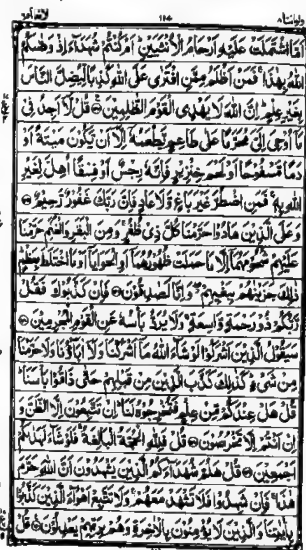 ولوانناه ١١٤ الانعام٦
اَمَّا اشْتَمَلَتْ عَلَيْهِ اَرْحَامُ الْاُنْثَيَيْنِ اَمْ كُنْتُمْ شُهَدَآءَ اِذْ وَصّٰىكُمُ
اللّٰهُ بِهٰذَا فَمَنْ اَظْلَمُ مِمَّنِ افْتَرٰى عَلَى اللّٰهِ كَذِبًا لِّيُضِلَّ النَّاسَ
بِغَيْرِ عِلْمٍ اِنَّ اللّٰهَ لَا يَهْدِى الْقَوْمَ الظّٰلِمِيْنَ قُلْ لَّاۤ اَجِدُ فِىْ
مَاۤ اُوْحِىَ اِلَىَّ مُحَرَّمًا عَلٰى طَاعِمٍ يَّطْعَمُهٗۤ اِلَّاۤ اَنْ يَّكُوْنَ مَيْتَةً اَوْ
دَمًا مَّسْفُوْحًا اَوْ لَحْمَ خِنْزِيْرٍ فَاِنَّهٗ رِجْسٌ اَوْ فِسْقًا اُهِلَّ لِغَيْرِ
اللّٰهِ بِهٖ فَمَنِ اضْطُرَّ غَيْرَ بَاغٍ وَّلَا عَادٍ فَاِنَّ رَبَّكَ غَفُوْرٌ رَّحِيْمٌ
وَعَلَى الَّذِيْنَ هَادُوْا حَرَّمْنَا كُلَّ ذِىْ ظُفُرٍ وَمِنَ الْبَقَرِ وَالْغَنَمِ حَرَّمْنَا
عَلَيْهِمْ شُحُوْمَهُمَاۤ اِلَّا مَا حَمَلَتْ ظُهُوْرُهُمَاۤ اَوِ الْحَوَايَاۤ اَوْ مَا اخْتَلَطَ بِعَظْمٍ
ذٰلِكَ جَزَيْنٰهُمْ بِبَغْيِهِمْ وَاِنَّا لَصٰدِقُوْنَ فَاِنْ كَذَّبُوْكَ فَقُلْ
رَّبُّكُمْ ذُوْ رَحْمَةٍ وَّاسِعَةٍ وَلَا يُرَدُّ بَاْسُهٗ عَنِ الْقَوْمِ الْمُجْرِمِيْنَ
سَيَقُوْلُ الَّذِيْنَ اَشْرَكُوْا لَوْ شَآءَ اللّٰهُ مَاۤ اَشْرَكْنَا وَلَاۤ اٰبَآؤُنَا وَلَا حَرَّمْنَا
مِنْ شَىْءٍ كَذٰلِكَ كَذَّبَ الَّذِيْنَ مِنْ قَبْلِهِمْ حَتّٰى ذَاقُوْا بَاْسَنَا
قُلْ هَلْ عِنْدَكُمْ مِّنْ عِلْمٍ فَتُخْرِجُوْهُ لَنَا اِنْ تَتَّبِعُوْنَ اِلَّا الظَّنَّ وَ
اِنْ اَنْتُمْ اِلَّا تَخْرُصُوْنَ قُلْ فَلِلّٰهِ الْحُجَّةُ الْبَالِغَةُ فَلَوْ شَآءَ لَهَدٰىكُمْ
اَجْمَعِيْنَ قُلْ هَلُمَّ شُهَدَآءَكُمُ الَّذِيْنَ يَشْهَدُوْنَ اَنَّ اللّٰهَ حَرَّمَ
هٰذَا فَاِنْ شَهِدُوْا فَلَا تَشْهَدْ مَعَهُمْ وَلَا تَتَّبِعْ اَهْوَآءَ الَّذِيْنَ كَذَّبُوْا
بِاٰيٰتِنَا وَالَّذِيْنَ لَا يُؤْمِنُوْنَ بِالْاٰخِرَةِ وَهُمْ بِرَبِّهِمْ يَعْدِلُوْنَ قُلْ